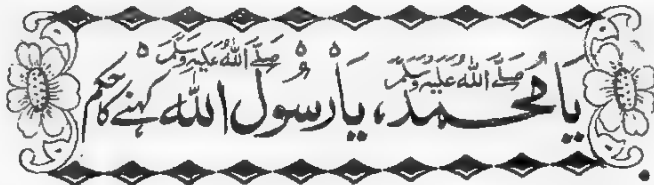 یَا مُحَمَّد صَلَّے اللّٰہُ عَلَیْہِ وَسَلَّمْ، یَا رَسُوْلَ اللّٰہ صَلَّے اللّٰہُ عَلَیْہِ وَسَلَّمْ کہنے کا حکم